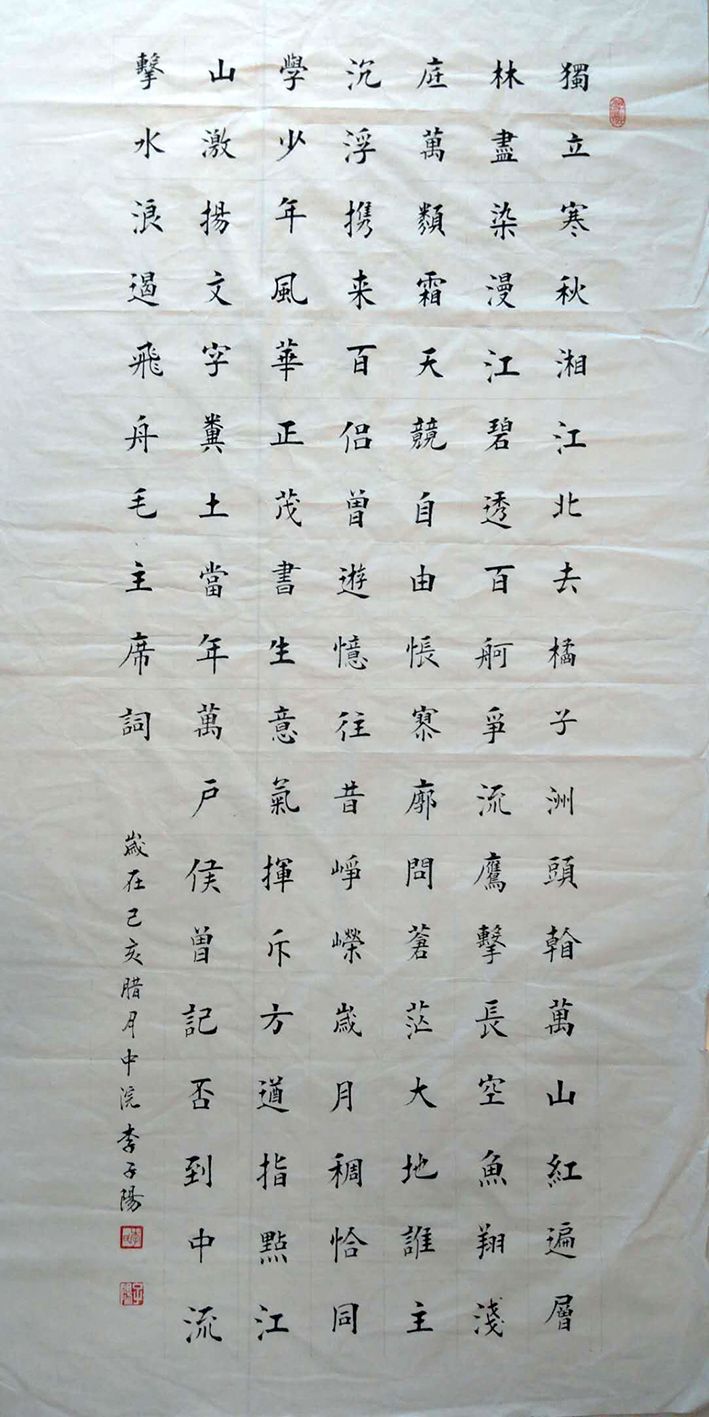 獨立寒秋湘江北去橘子洲頭看萬山紅遍層
林盡染漫江碧透百舸爭流鷹擊長空魚翔淺
庭萬類霜天競自由悵寥廓問蒼茫大地誰主
沉浮携来百侣曾遊憶往昔崢嶸歲月稠恰同
學少年風華正茂書生意氣揮斥方遒指點江
山激揚文字糞土當年萬户侯曾記否到中流
擊水浪遏飛舟毛主席詞
歲在己亥腊月中浣李子陽